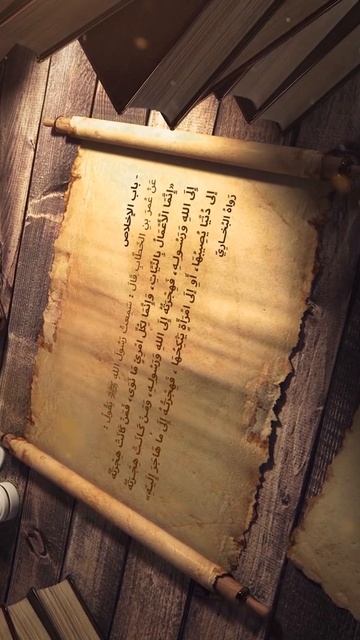 - باب الإخلاص
عَنْ عُمَرَ بنِ الخَطَّابِ قَالَ : سَمِعْتُ رَسُولَ اللهِ ﷺ يَقُولُ :
«إِنَّمَا الأَعْمَالُ بِالنِّيَّاتِ، وَإِنَّمَا لِكُلِّ امْرِئٍ مَا نَوَى، فَمَنْ كَانَتْ هِجْرَتُهُ
إِلَى اللهِ وَرَسُولِهِ، فَهِجْرَتُهُ إِلَى اللهِ وَرَسُولِهِ، وَمَنْ كَانَتْ هِجْرَتُهُ
إِلَى دُنْيَا يُصِيبُهَا، أَوْ إِلَى امْرَأَةٍ يَنْكِحُهَا ، فَهِجْرَتُهُ إِلَى مَا هَاجَرَ إِلَيْهِ»
رَوَاهُ البُخَارِيُّ